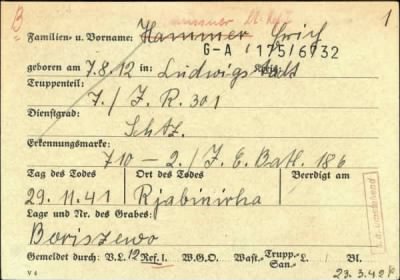 B 1
Familien- u. Vorname: Hammer Erich
G-A 175/6732
geboren am 7.8.12 in: Ludwigs
Truppenteil: Kreis:
7./J.R. 301
Dienstgrad:
Schtz.
Erkennungsmarke:
710 – 2./J.E.Batl. 186
Tag des Todes Ort des Todes Beerdigt am
29.11.41 Rjabinirka
Lage und Nr. des Grabes:
Boriszewo
Gemeldet durch: V.L. 12 Ref. 1. W.G.O. Wast.- Trupp.- San.- L. Bl.
V 6 23.3.42